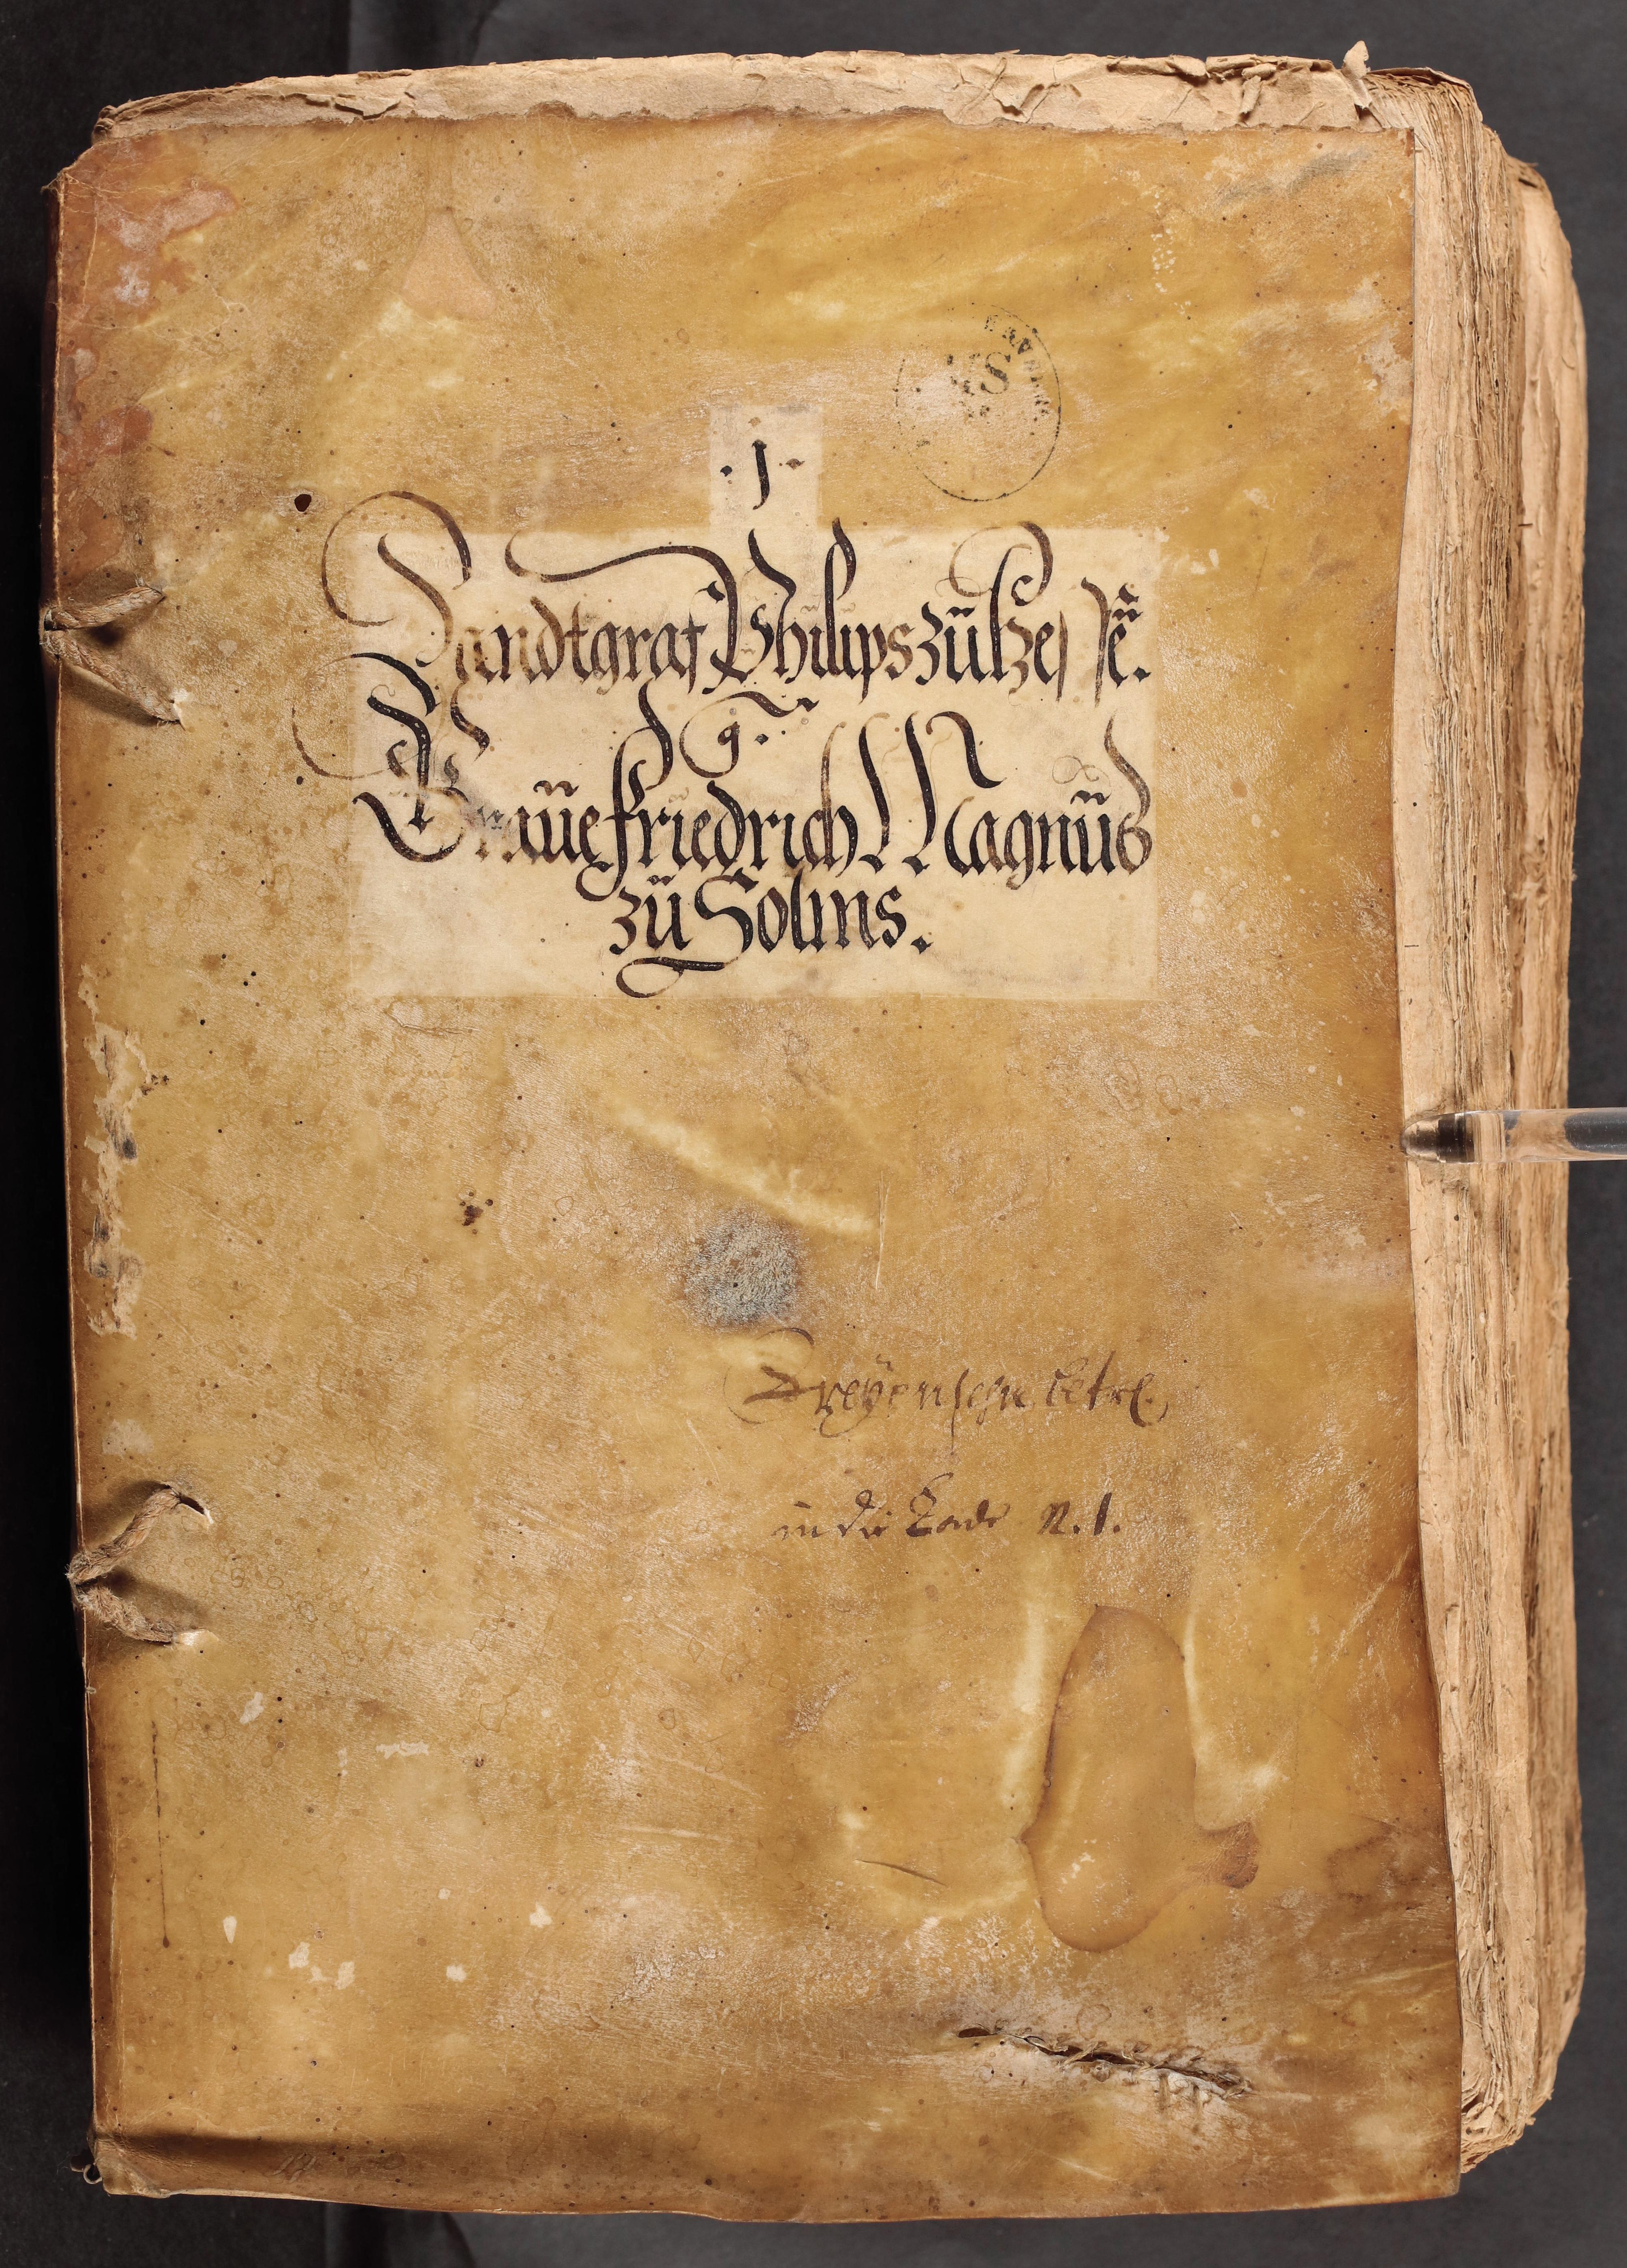 . 1 .
Landtgraf Philips zü Hessẽ.
g.
Graüe Friedrich Magnüs
zü Solms.
Dreyensehe betrf.
in die Lade N. 1.